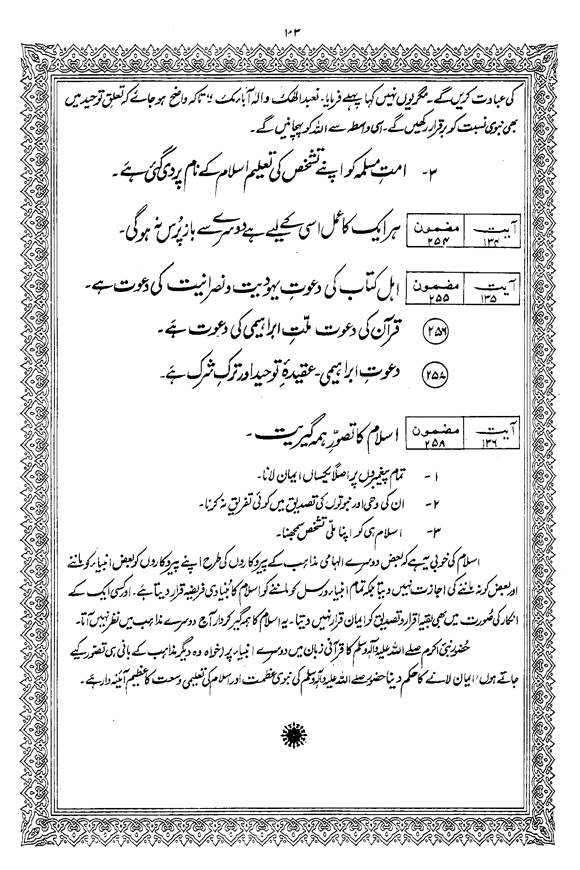 ۱۰۳
کی عبادت کریں گے۔ مگر یوں نہیں کہا پہلے فرمایا۔ نعبد الٰھک والٰہ آبائک ؛ تاکہ واضح ہو جائے کہ تعلق توحید میں
بھی نبوی نسبت کو برقرار رکھیں گے۔ اسی واسطہ سے اللہ کو پہچانیں گے۔
۳- امتِ مسلمہ کو اپنے تشخص کی تعلیم اسلام کے نام پر دی گئی ہے۔
آیت ۱۳۴ مضمون ۲۵۴ ہر ایک کا عمل اسی کے لیے ہے دوسرے سے باز پُرس نہ ہوگی۔
آیت ۱۳۵ مضمون ۲۵۵ اہل کتاب کی دعوت یہودیت و نصرانیت کی دعوت ہے۔
۲۵۶ قرآن کی دعوت ملّتِ ابراہیمی کی دعوت ہے۔
۲۵۷ دعوتِ ابراہیمی۔ عقیدۂ توحید اور ترکِ شرک ہے۔
آیت ۱۳۶ مضمون ۲۵۸ اسلام کا تصوّرِ ہمہ گیریت۔
۱- تمام پیغمبروں پر اصلاً یکساں ایمان لانا۔
۲- ان کی وحی اور نبوتوں کی تصدیق میں کوئی تفریق نہ کرنا۔
۳- اسلام ہی کو اپنا ملّی تشخص سمجھنا۔
اسلام کی خوبی یہ ہے کہ بعض دوسرے الہامی مذاہب کے پیروکاروں کی طرح اپنے پیروکاروں کو بعض انبیاء کو ماننے
اور بعض کو نہ ماننے کی اجازت نہیں دیتا بلکہ تمام انبیاء و رسل کو ماننے کو اسلام کا بنیادی فریضہ قرار دیتا ہے۔ اور کسی ایک کے
انکار کی صُورت میں بھی بقیہ اقرار و تصدیق کو ایمان قرار نہیں دیتا۔ یہ اسلام کا ہمہ گیر کردار آج دوسرے مذاہب میں نظر نہیں آتا۔
حضور نبی اکرم صلے اللہ علیہ وآلہ وسلم کا قرآنی زبان میں دوسرے انبیاء پر (خواہ وہ دیگر مذاہب کے بانی ہی تصور کیے
جاتے ہوں) ایمان لانے کا حکم دینا حضور صلے اللہ علیہ وآلہ وسلم کی نبوی عظمت اور اسلام کی تعلیمی وسعت کا عظیم آئینہ دار ہے۔